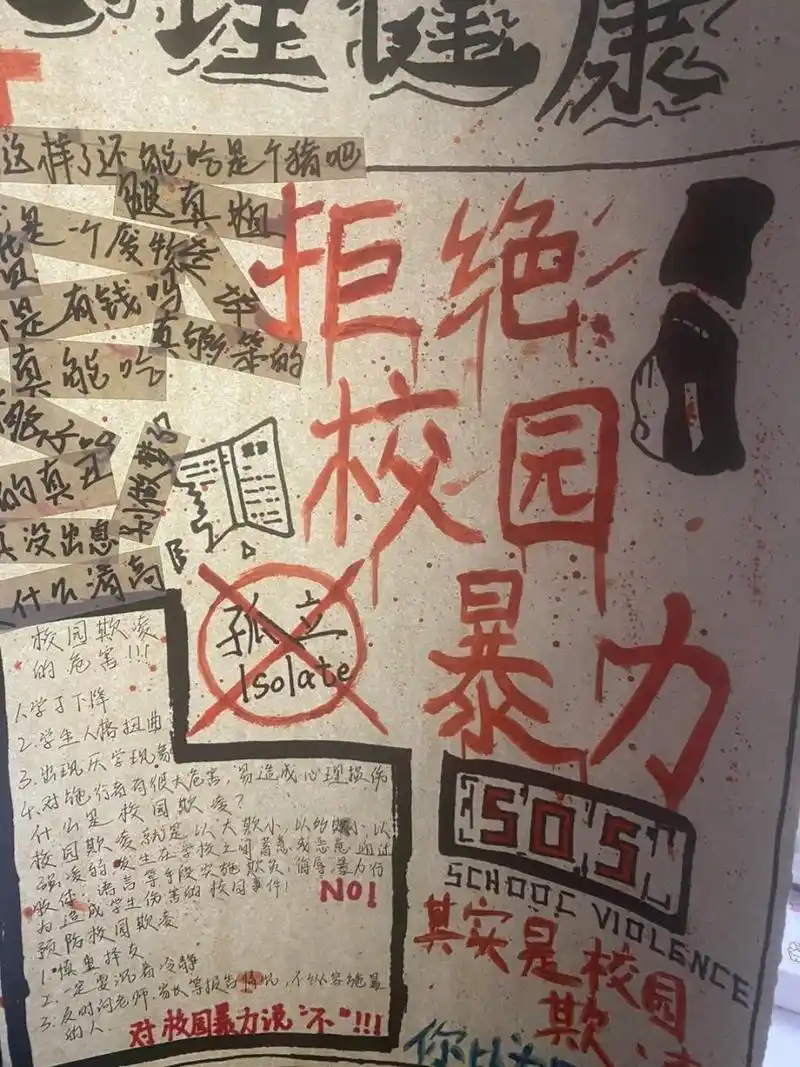 理健康
这样了还能吃是个猪吧
腿真粗
是一个废物
是有钱吗
真够笨的
真能吃
的真丑
别做梦了
没出息
什么清高
拒绝
校园
暴力
孤立
Isolate
校园欺凌
的危害!!!
1.学习下降
2.学生人格扭曲
3.出现厌学现象
4.对施行者有很大危害,易造成心理损伤
什么是校园欺凌?
校园欺凌就是以大欺小,以
强凌弱的发生在学校之间蓄意或恶意通过
肢体、语言等手段实施欺负、侮辱、暴力行
为造成学生伤害的校园事件!
NO!
预防校园欺凌
1.慎重择友
2.一定要沉着冷静
3.及时向老师、家长等报告情况,不纵容施暴
的人.
对校园暴力说"不"!!!
SOS
SCHOOL VIOLENCE
其实是校园
欺
你以为